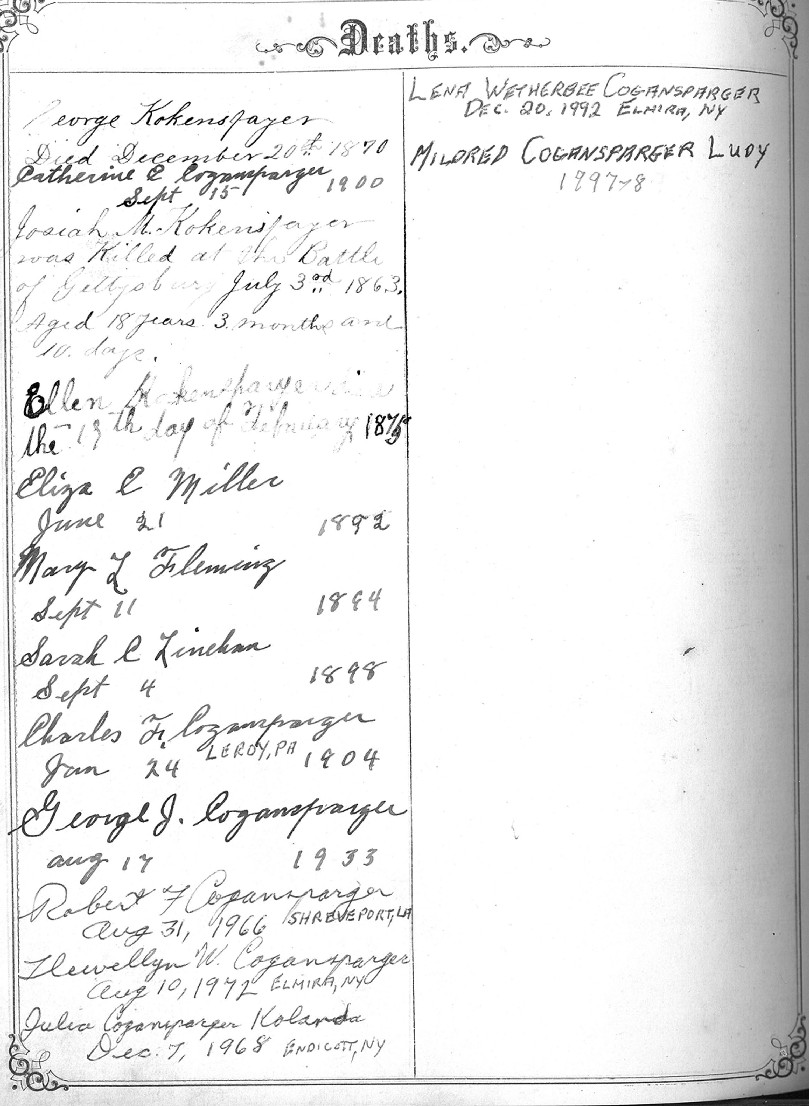 Deaths.
George Kokenspayer
Died December 20th 1870
Catherine E Cogansparger
Sept 15 1900
Josiah M. Kokenspayer
was Killed at the Battle
of Gettysburg July 3rd 1863.
Aged 18 years 3 months and
10 days.
Ellen
the 13th day of February
Eliza E Miller
June 21 1892
Mary L Fleming
Sept 11 1894
Sarah C Linehan
Sept 4 1898
Charles F. Cogansparger
Jan 24 LEROY, PA 1904
George J. Cogansparger
aug 17 1933
Robert F Cogansparger
Aug 31, 1966 SHREVEPORT, LA
Llewellyn W. Cogansparger
Aug 10, 1972 ELMIRA, NY
Julia Cogansparger Kolanda
Dec. 7, 1968 ENDICOTT, NY
LENA WETHERBEE COGANSPARGER
DEC. 20, 1992 ELMIRA, NY
MILDRED COGANSPARGER LUDY
1997-8